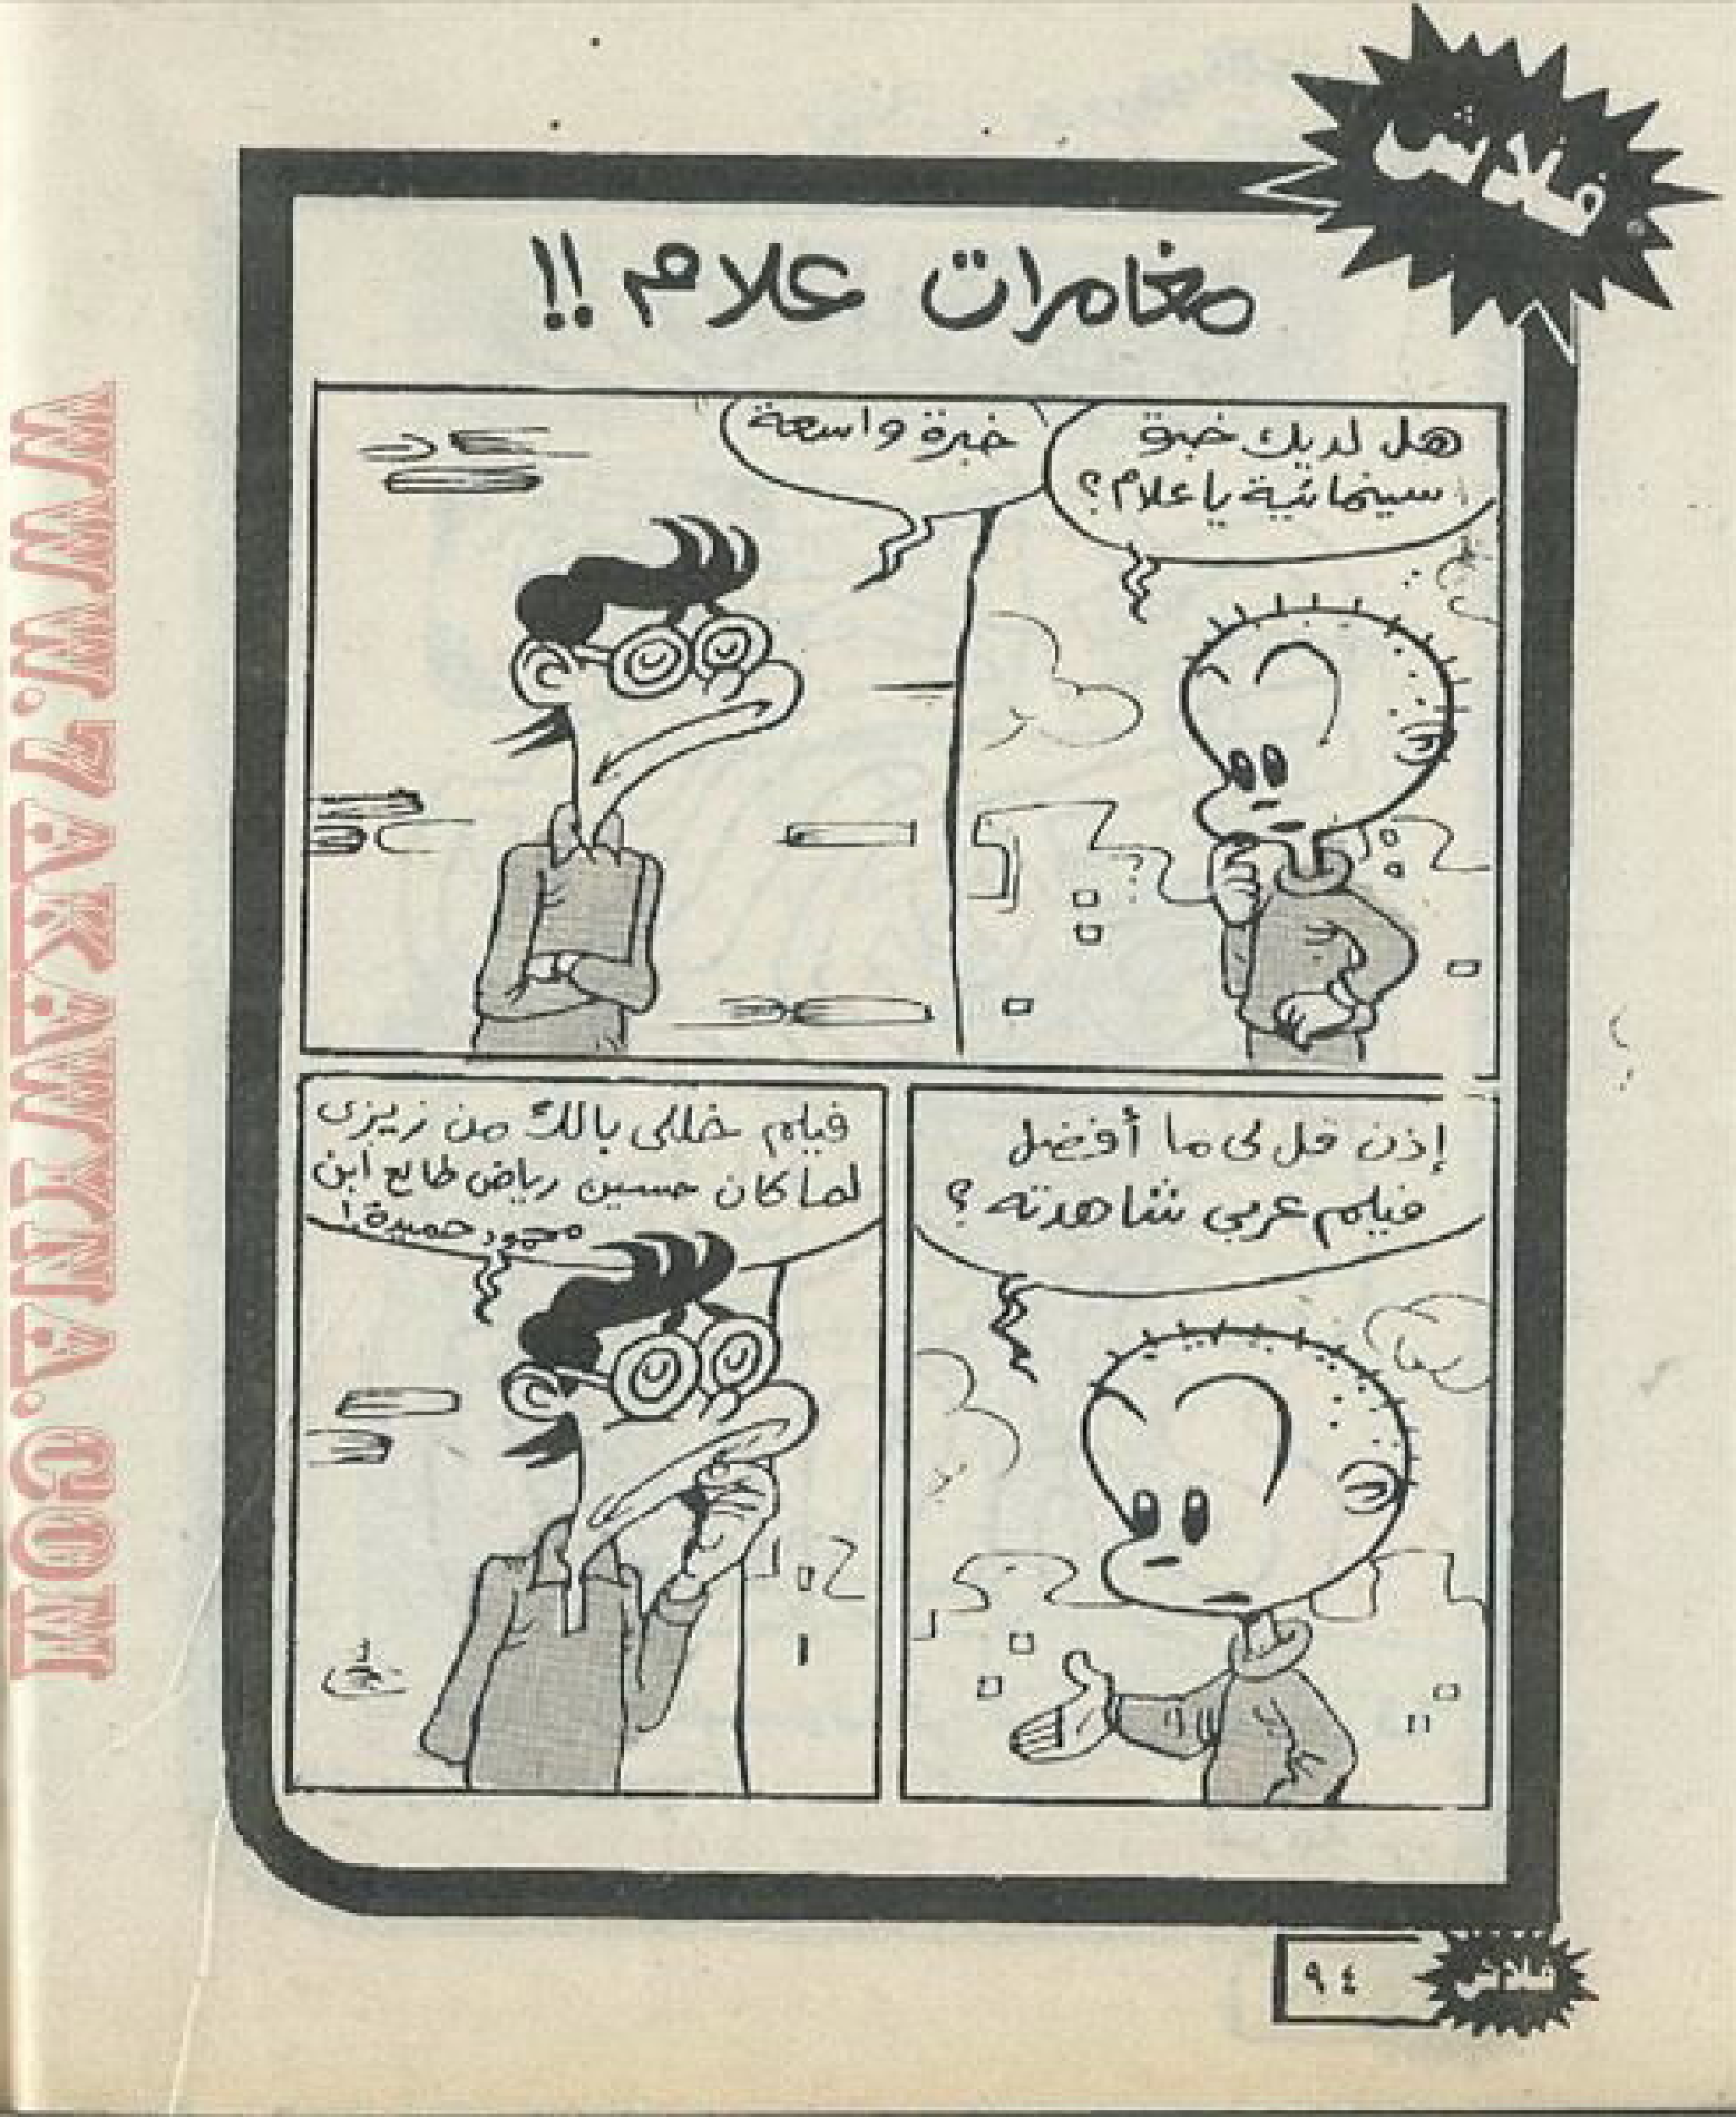 فلاش
مغامرات علام !!
هل لديك خبرة
سينمائية يا علام؟
خبرة واسعة
إذن قل لى ما أفضل
فيلم عربي شاهدته ؟
فيلم خللى بالك من زيزى
لما كان حسين رياض طالع ابن
محمود حميدة!
٩٤
فلاش
WWW.7AKAWITNA.COM